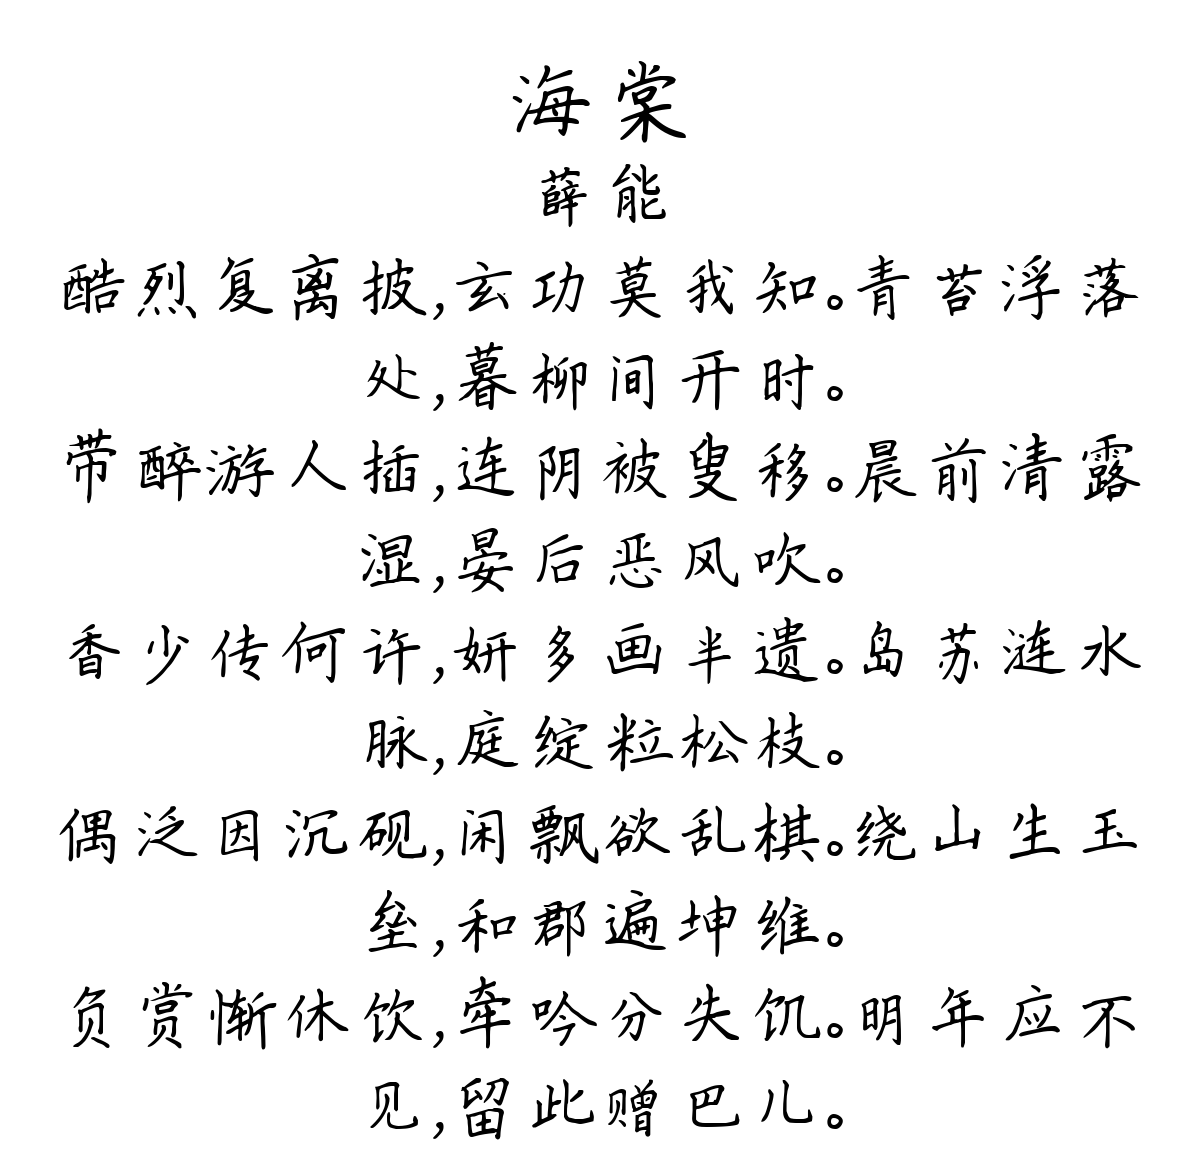 海棠
薛能
酷烈复离披,玄功莫我知。青苔浮落
处,暮柳间开时。
带醉游人插,连阴被叟移。晨前清露
湿,晏后恶风吹。
香少传何许,妍多画半遗。岛苏涟水
脉,庭绽粒松枝。
偶泛因沉砚,闲飘欲乱棋。绕山生玉
垒,和郡遍坤维。
负赏惭休饮,牵吟分失饥。明年应不
见,留此赠巴儿。